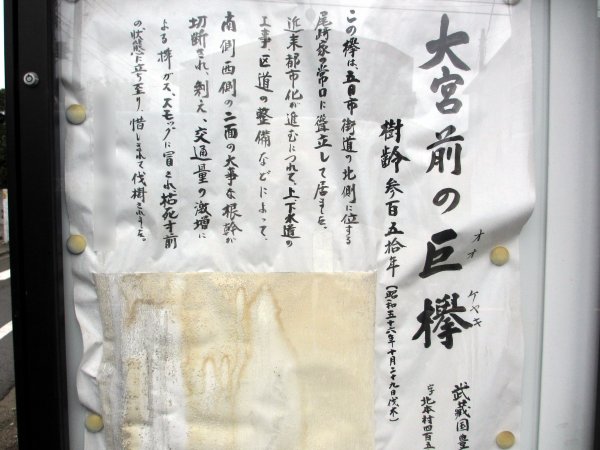 大宮前の巨欅
オオケヤキ
武蔵国豊
字北本村四百五
樹齢参百五拾年(昭和五十六年十月二十九日伐木)
この欅は、五日市街道の北側に位する
尾崎家の常口に聳立して居ました、
近来都市化が進むにつれて、上下水道の
工事、区道の整備などによって、
南側西側の二面の大事な根幹が
切断され、剰え、交通量の激増に
よる排ガス、スモッグに冒され枯死寸前
の状態に立ち至り、惜しまれて伐樹されました。